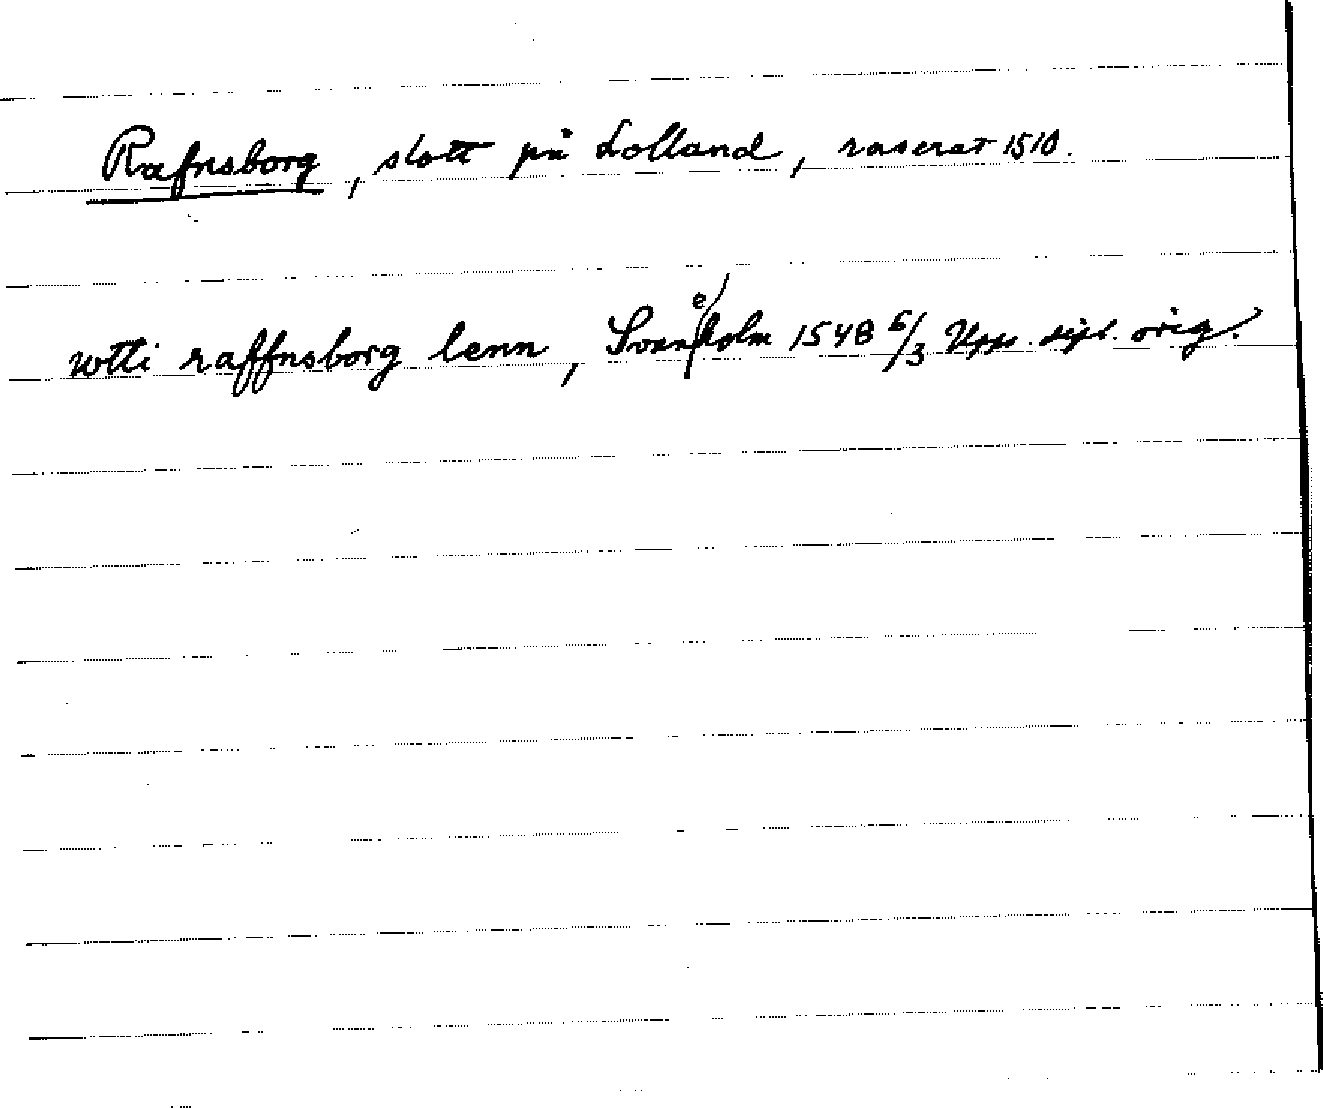 Rafnsborg, slott på Lolland, raserat 1510.
wtti raffnsborg lenn, Svaneholm 1548 6/3 Upps. dipl. orig.